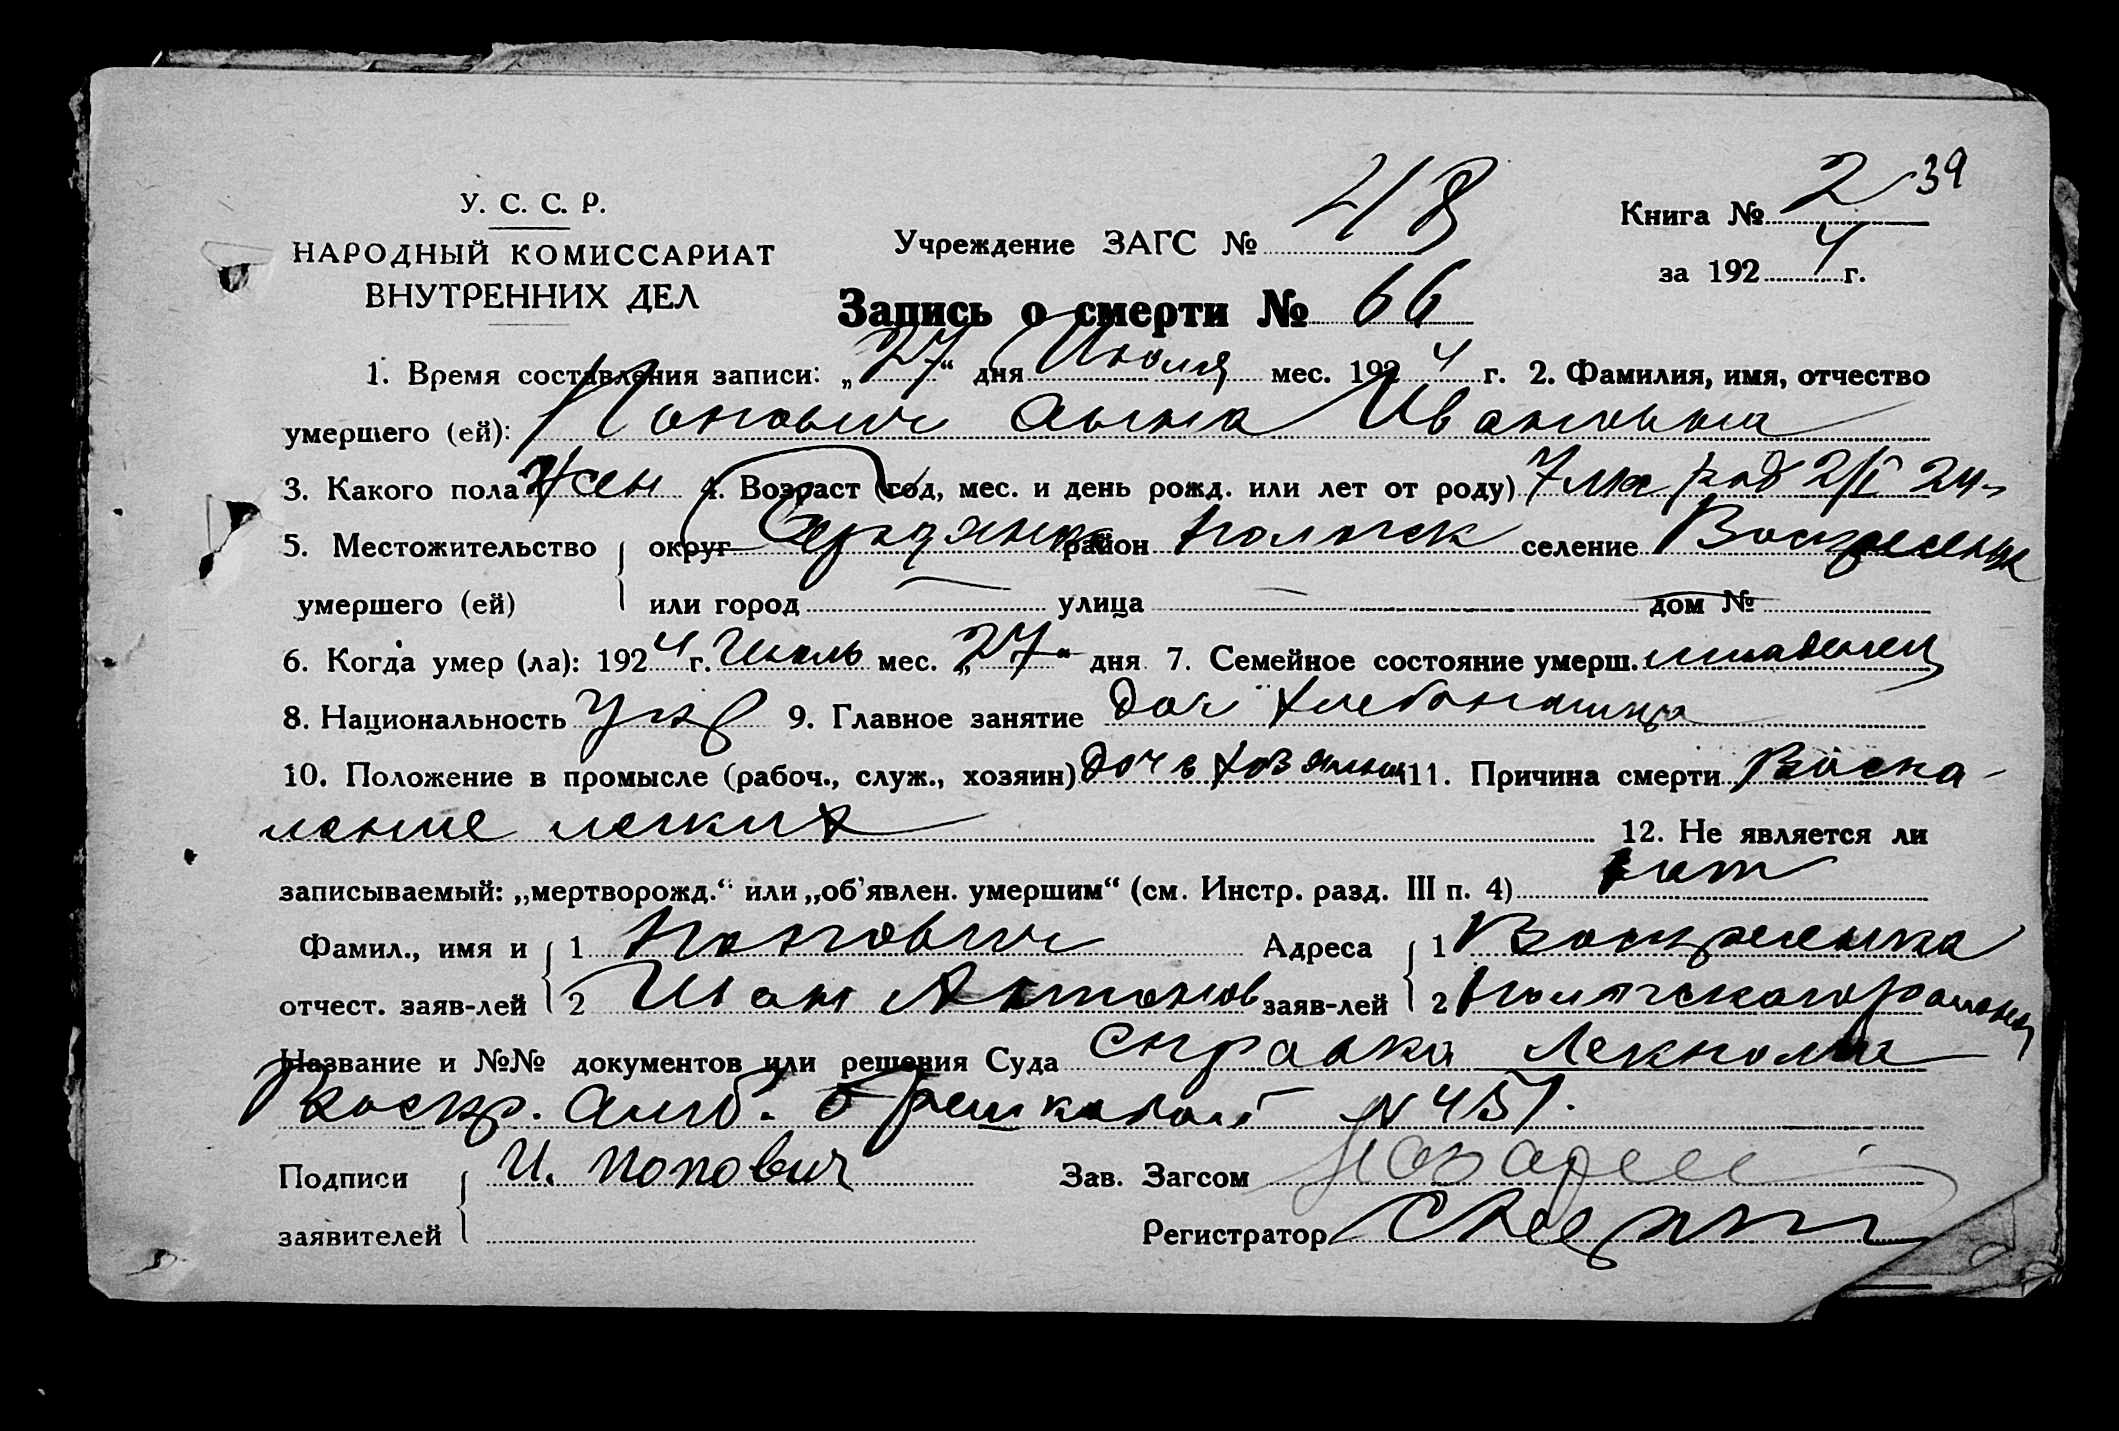 39
У. С. С. Р.
НАРОДНЫЙ КОМИССАРИАТ
ВНУТРЕННИХ ДЕЛ
Учреждение ЗАГС № 48
Книга № 2
за 1924 г.
Запись о смерти № 66
1. Время составления записи: „27“ дня Июля мес. 1924 г. 2. Фамилия, имя, отчество
умершего (ей): Попович Анна Ивановна
3. Какого пола Жен 4. Возраст (год, мес. и день рожд. или лет от роду) 7 род 2/I 24
5. Местожительство округ Бердянск район Пологск селение Воскресенка
умершего (ей) или город — улица — дом № —
6. Когда умер (ла): 1924 г. Июль мес. „27“ дня 7. Семейное состояние умерш. младенец
8. Национальность Укр 9. Главное занятие доч хлебопашца
10. Положение в промысле (рабоч., служ., хозяин) дочь хозяина 11. Причина смерти Воспа-
ление легких 12. Не является ли
записываемый: „мертворожд.“ или „об'явлен. умершим“ (см. Инстр. разд. III п. 4) нет
Фамил., имя и 1 Попович Адреса 1 Воскресенка
отчест. заяв-лей 2 Иван Антонов заяв-лей 2 Пологского района
Название и №№ документов или решения Суда справка Лекпома
Воскр. Амб. № 451.
Подписи И. Попович Зав. Загсом
заявителей Регистратор